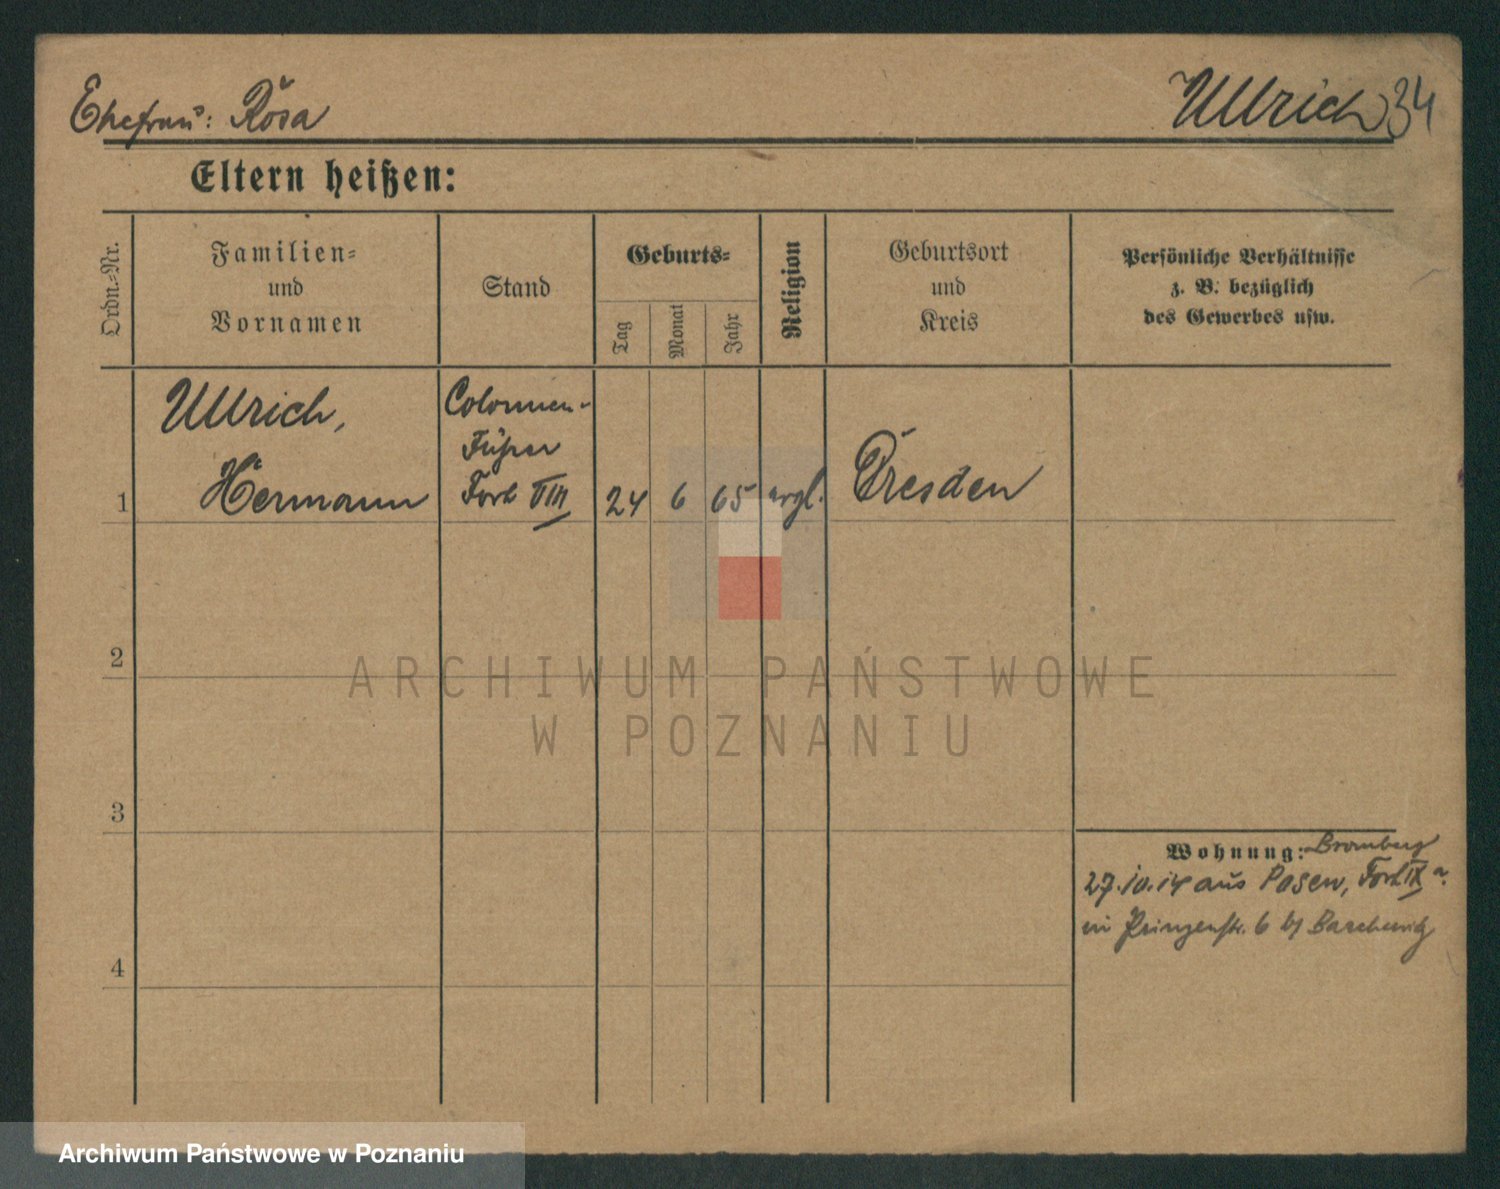 Ehefrau: Rosa
Ullrich 34
Eltern heißen:
Ordn.-Nr.
Familien- und Vornamen
Stand
Geburts-
Tag
Monat
Jahr
Religion
Geburtsort und Kreis
Persönliche Verhältnisse
z. B. bezüglich
des Gewerbes usw.
Ullrich,
Hermann
Colonnen-
Führer
Fort VIII
1
24 6 65 evgl. Dresden
2
ARCHIWUM PAŃSTWOWE
W POZNANIU
3
Wohnung: Bromberg
27.10.14 aus Posen, Fort IX
in Prinzenstr. 6 b/
4
Archiwum Państwowe w Poznaniu